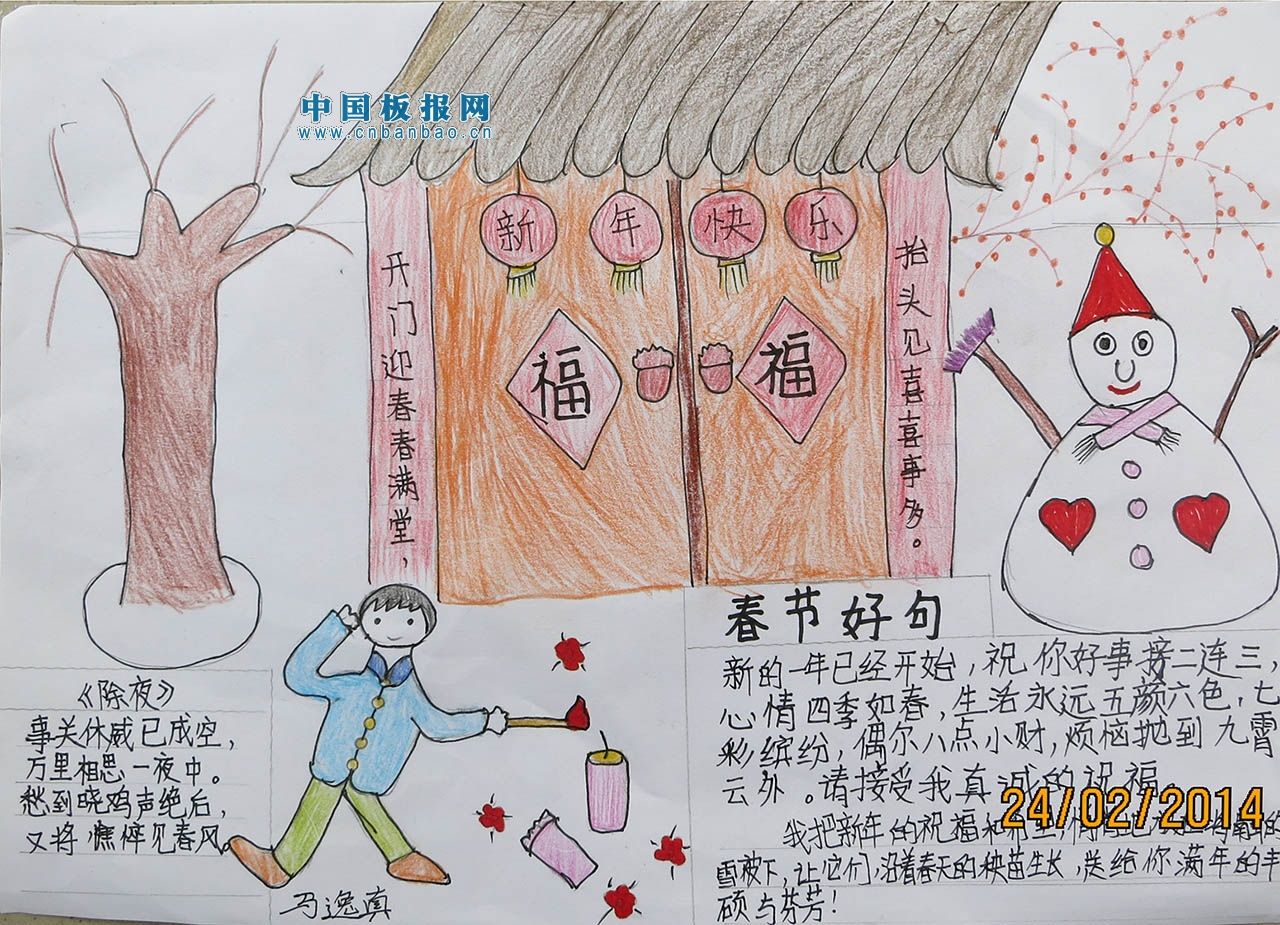 中国板报网
www.cnbanbao.cn
新年快乐
开门迎春春满堂，
抬头见喜喜事多。
福
福
春节好句
新的一年已经开始，祝你好事接二连三，
心情四季如春，生活永远五颜六色，七
彩缤纷，偶尔八点小财，烦恼抛到九霄
云外。请接受我真诚的祝福。
24/02/2014
我把新年的祝福和
雪被下，让它们，沿着春天的秧苗生长，送给你满年的丰
硕与芬芳！
《除夜》
事关休戚已成空，
万里相思一夜中。
愁到晓鸡声绝后，
又将憔悴见春风。
马逸真